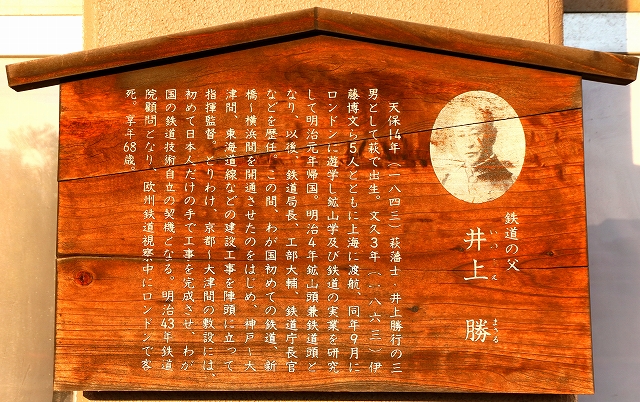 鉄道の父
井上 勝
いのうえ まさる
天保14年(一八四三)萩藩士・井上勝行の三
男として萩で出生。文久3年(一八六三)伊
藤博文ら5人とともに上海に渡航、同年9月に
ロンドンに遊学し鉱山学及び鉄道の実業を研究
して明治元年帰国。明治4年鉱山頭兼鉄道頭と
なり、以後、鉄道局長、工部大輔、鉄道庁長官
などを歴任。この間、わが国初めての鉄道、新
橋〜横浜間を開通させたのをはじめ、神戸〜大
津間、東海道線などの建設工事を陣頭に立って
指揮監督。とりわけ、京都〜大津間の敷設には、
初めて日本人だけの手で工事を完成させ、わが
国の鉄道技術自立の契機となる。明治43年鉄道
院顧問となり、欧州鉄道視察中にロンドンで客
死。享年68歳。